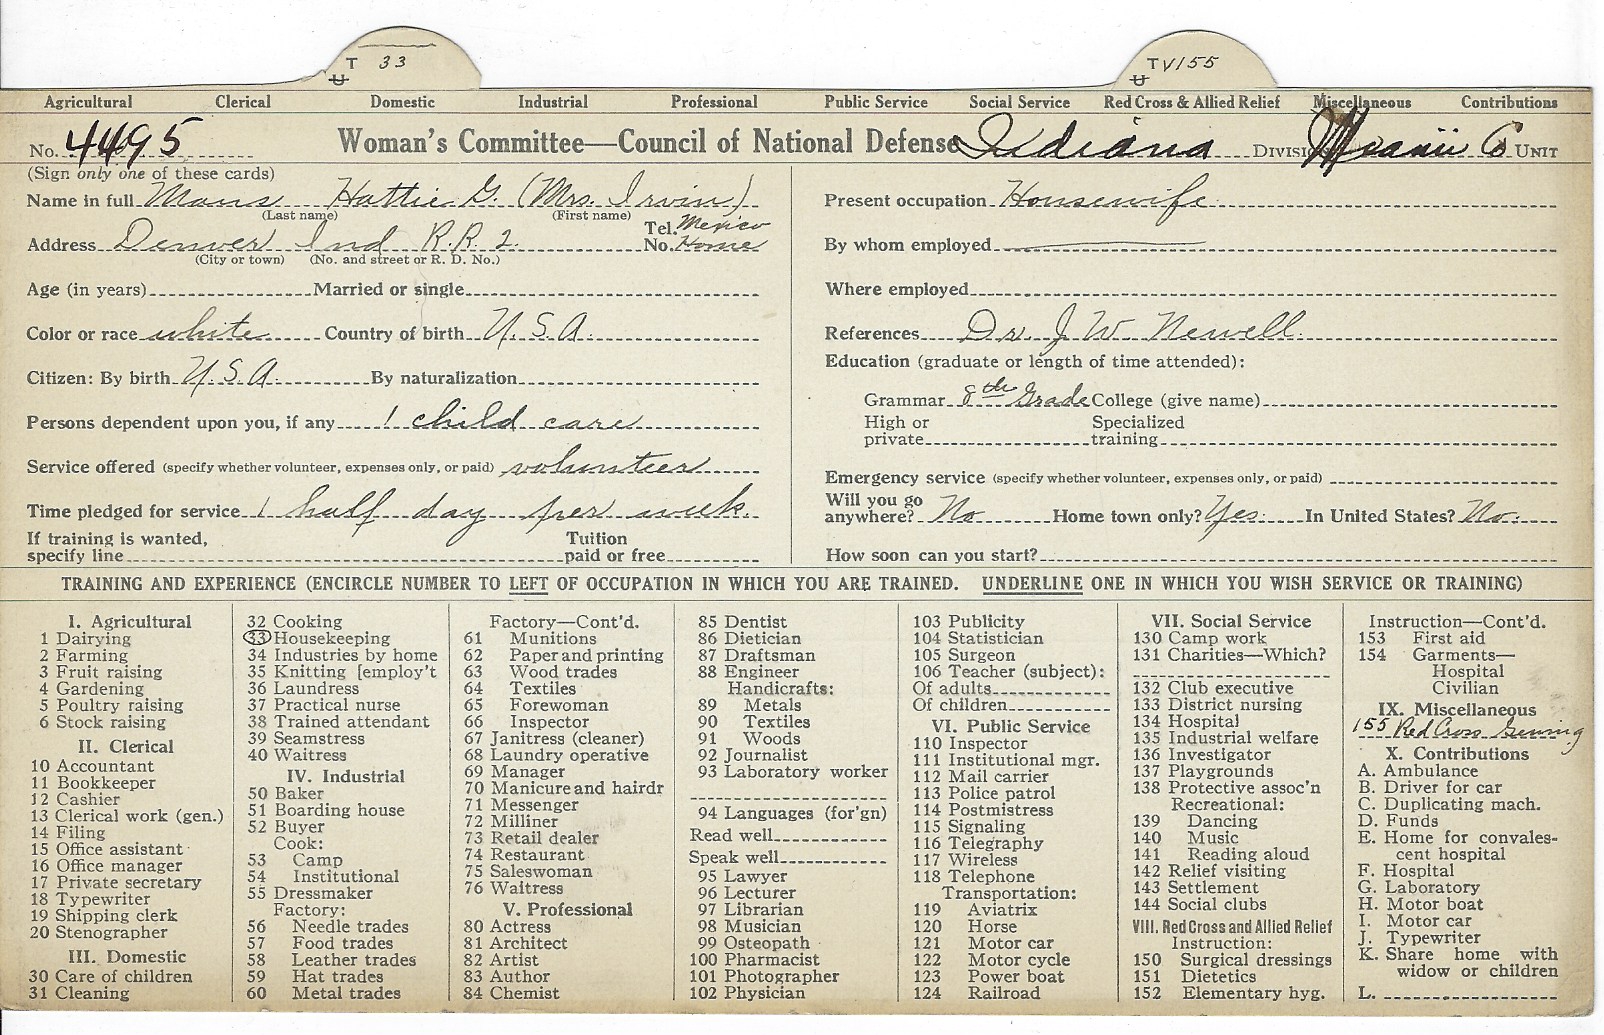 T 33
U
TV155
U
Agricultural Clerical Domestic Industrial Professional Public Service Social Service Red Cross & Allied Relief Miscellaneous Contributions
No. 4495 Woman's Committee—Council of National Defense Indiana DIVISION Miami Co UNIT
(Sign only one of these cards)
Name in full Maus Hattie G. (Mrs. Irvin)
(Last name) (First name)
Address Denver Ind R.R. 2. Tel. No. Mexico Home
(City or town) (No. and street or R. D. No.)
Age (in years) Married or single
Color or race white Country of birth U.S.A.
Citizen: By birth U.S.A. By naturalization
Persons dependent upon you, if any 1 child care
Service offered (specify whether volunteer, expenses only, or paid) volunteer
Time pledged for service 1 half day per week
If training is wanted, specify line Tuition paid or free
Present occupation Housewife
By whom employed
Where employed
References Dr. J. W. Newell
Education (graduate or length of time attended):
Grammar 8th Grade College (give name)
High or private Specialized training
Emergency service (specify whether volunteer, expenses only, or paid)
Will you go anywhere? No Home town only? Yes In United States? No.
How soon can you start?
TRAINING AND EXPERIENCE (ENCIRCLE NUMBER TO LEFT OF OCCUPATION IN WHICH YOU ARE TRAINED. UNDERLINE ONE IN WHICH YOU WISH SERVICE OR TRAINING)
I. Agricultural
1 Dairying
2 Farming
3 Fruit raising
4 Gardening
5 Poultry raising
6 Stock raising
II. Clerical
10 Accountant
11 Bookkeeper
12 Cashier
13 Clerical work (gen.)
14 Filing
15 Office assistant
16 Office manager
17 Private secretary
18 Typewriter
19 Shipping clerk
20 Stenographer
III. Domestic
30 Care of children
31 Cleaning
32 Cooking
33 Housekeeping
34 Industries by home
35 Knitting [employ't
36 Laundress
37 Practical nurse
38 Trained attendant
39 Seamstress
40 Waitress
IV. Industrial
50 Baker
51 Boarding house
52 Buyer
Cook:
53 Camp
54 Institutional
55 Dressmaker
Factory:
56 Needle trades
57 Food trades
58 Leather trades
59 Hat trades
60 Metal trades
Factory—Cont'd.
61 Munitions
62 Paper and printing
63 Wood trades
64 Textiles
65 Forewoman
66 Inspector
67 Janitress (cleaner)
68 Laundry operative
69 Manager
70 Manicure and hairdr
71 Messenger
72 Milliner
73 Retail dealer
74 Restaurant
75 Saleswoman
76 Waitress
V. Professional
80 Actress
81 Architect
82 Artist
83 Author
84 Chemist
85 Dentist
86 Dietician
87 Draftsman
88 Engineer
Handicrafts:
89 Metals
90 Textiles
91 Woods
92 Journalist
93 Laboratory worker
94 Languages (for'gn)
Read well
Speak well
95 Lawyer
96 Lecturer
97 Librarian
98 Musician
99 Osteopath
100 Pharmacist
101 Photographer
102 Physician
103 Publicity
104 Statistician
105 Surgeon
106 Teacher (subject):
Of adults
Of children
VI. Public Service
110 Inspector
111 Institutional mgr.
112 Mail carrier
113 Police patrol
114 Postmistress
115 Signaling
116 Telegraphy
117 Wireless
118 Telephone
Transportation:
119 Aviatrix
120 Horse
121 Motor car
122 Motor cycle
123 Power boat
124 Railroad
VII. Social Service
130 Camp work
131 Charities—Which?
132 Club executive
133 District nursing
134 Hospital
135 Industrial welfare
136 Investigator
137 Playgrounds
138 Protective assoc'n
Recreational:
139 Dancing
140 Music
141 Reading aloud
142 Relief visiting
143 Settlement
144 Social clubs
VIII. Red Cross and Allied Relief
Instruction:
150 Surgical dressings
151 Dietetics
152 Elementary hyg.
Instruction—Cont'd.
153 First aid
154 Garments—
Hospital
Civilian
IX. Miscellaneous
155 Red Cross Sewing
X. Contributions
A. Ambulance
B. Driver for car
C. Duplicating mach.
D. Funds
E. Home for convales-
cent hospital
F. Hospital
G. Laboratory
H. Motor boat
I. Motor car
J. Typewriter
K. Share home with
widow or children
L.